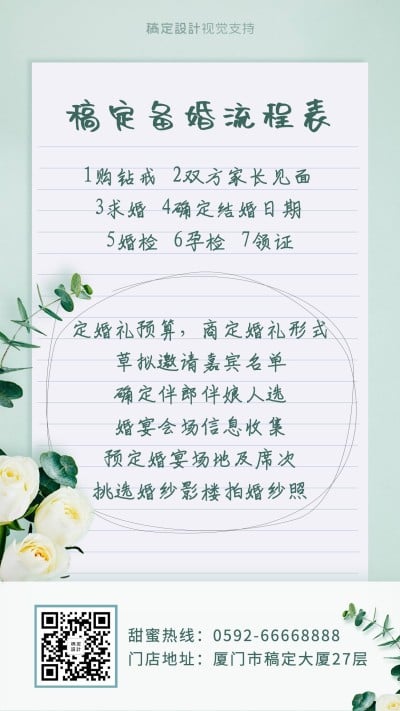 稿定設計视觉支持
稿定备婚流程表
1购钻戒 2双方家长见面
3求婚 4确定结婚日期
5婚检 6孕检 7领证
定婚礼预算，商定婚礼形式
草拟邀请嘉宾名单
确定伴郎伴娘人选
婚宴会场信息收集
预定婚宴场地及席次
挑选婚纱影楼拍婚纱照
稿定
設計
甜蜜热线：0592-66668888
门店地址：厦门市稿定大厦27层